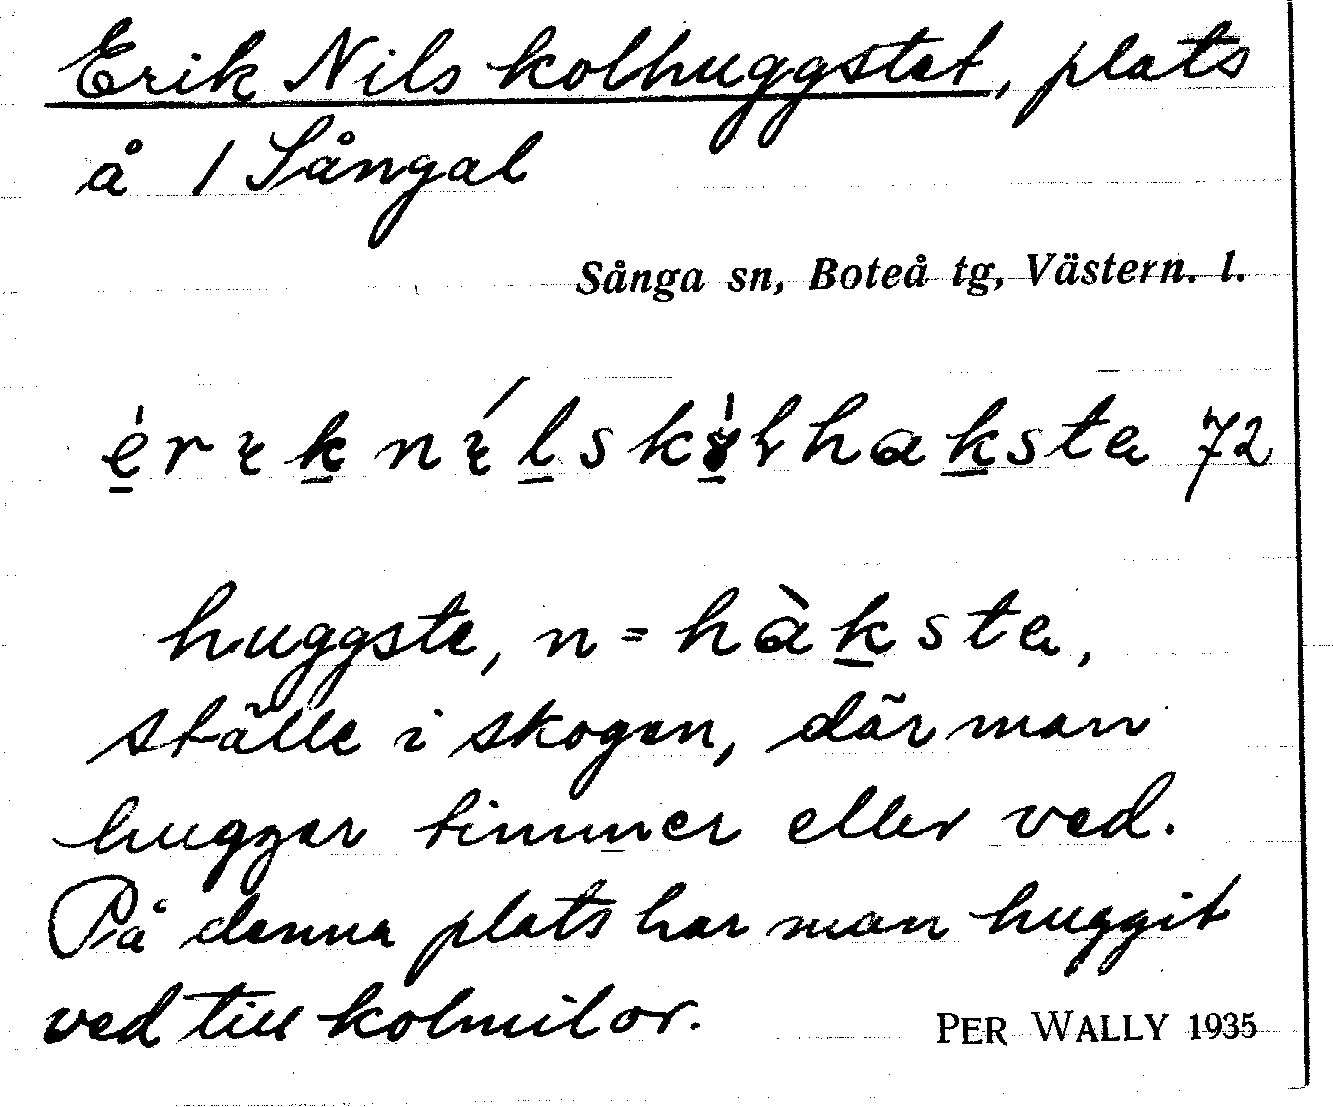 Erik Nils kolhuggstet, plats
å 1 Sångal
Sånga sn, Boteå tg, Västern. l.
72
huggste, n =
ställe i skogen, där man
hugger timmer eller ved.
På denna plats har man huggit
ved till kolmilor.
PER WALLY 1935